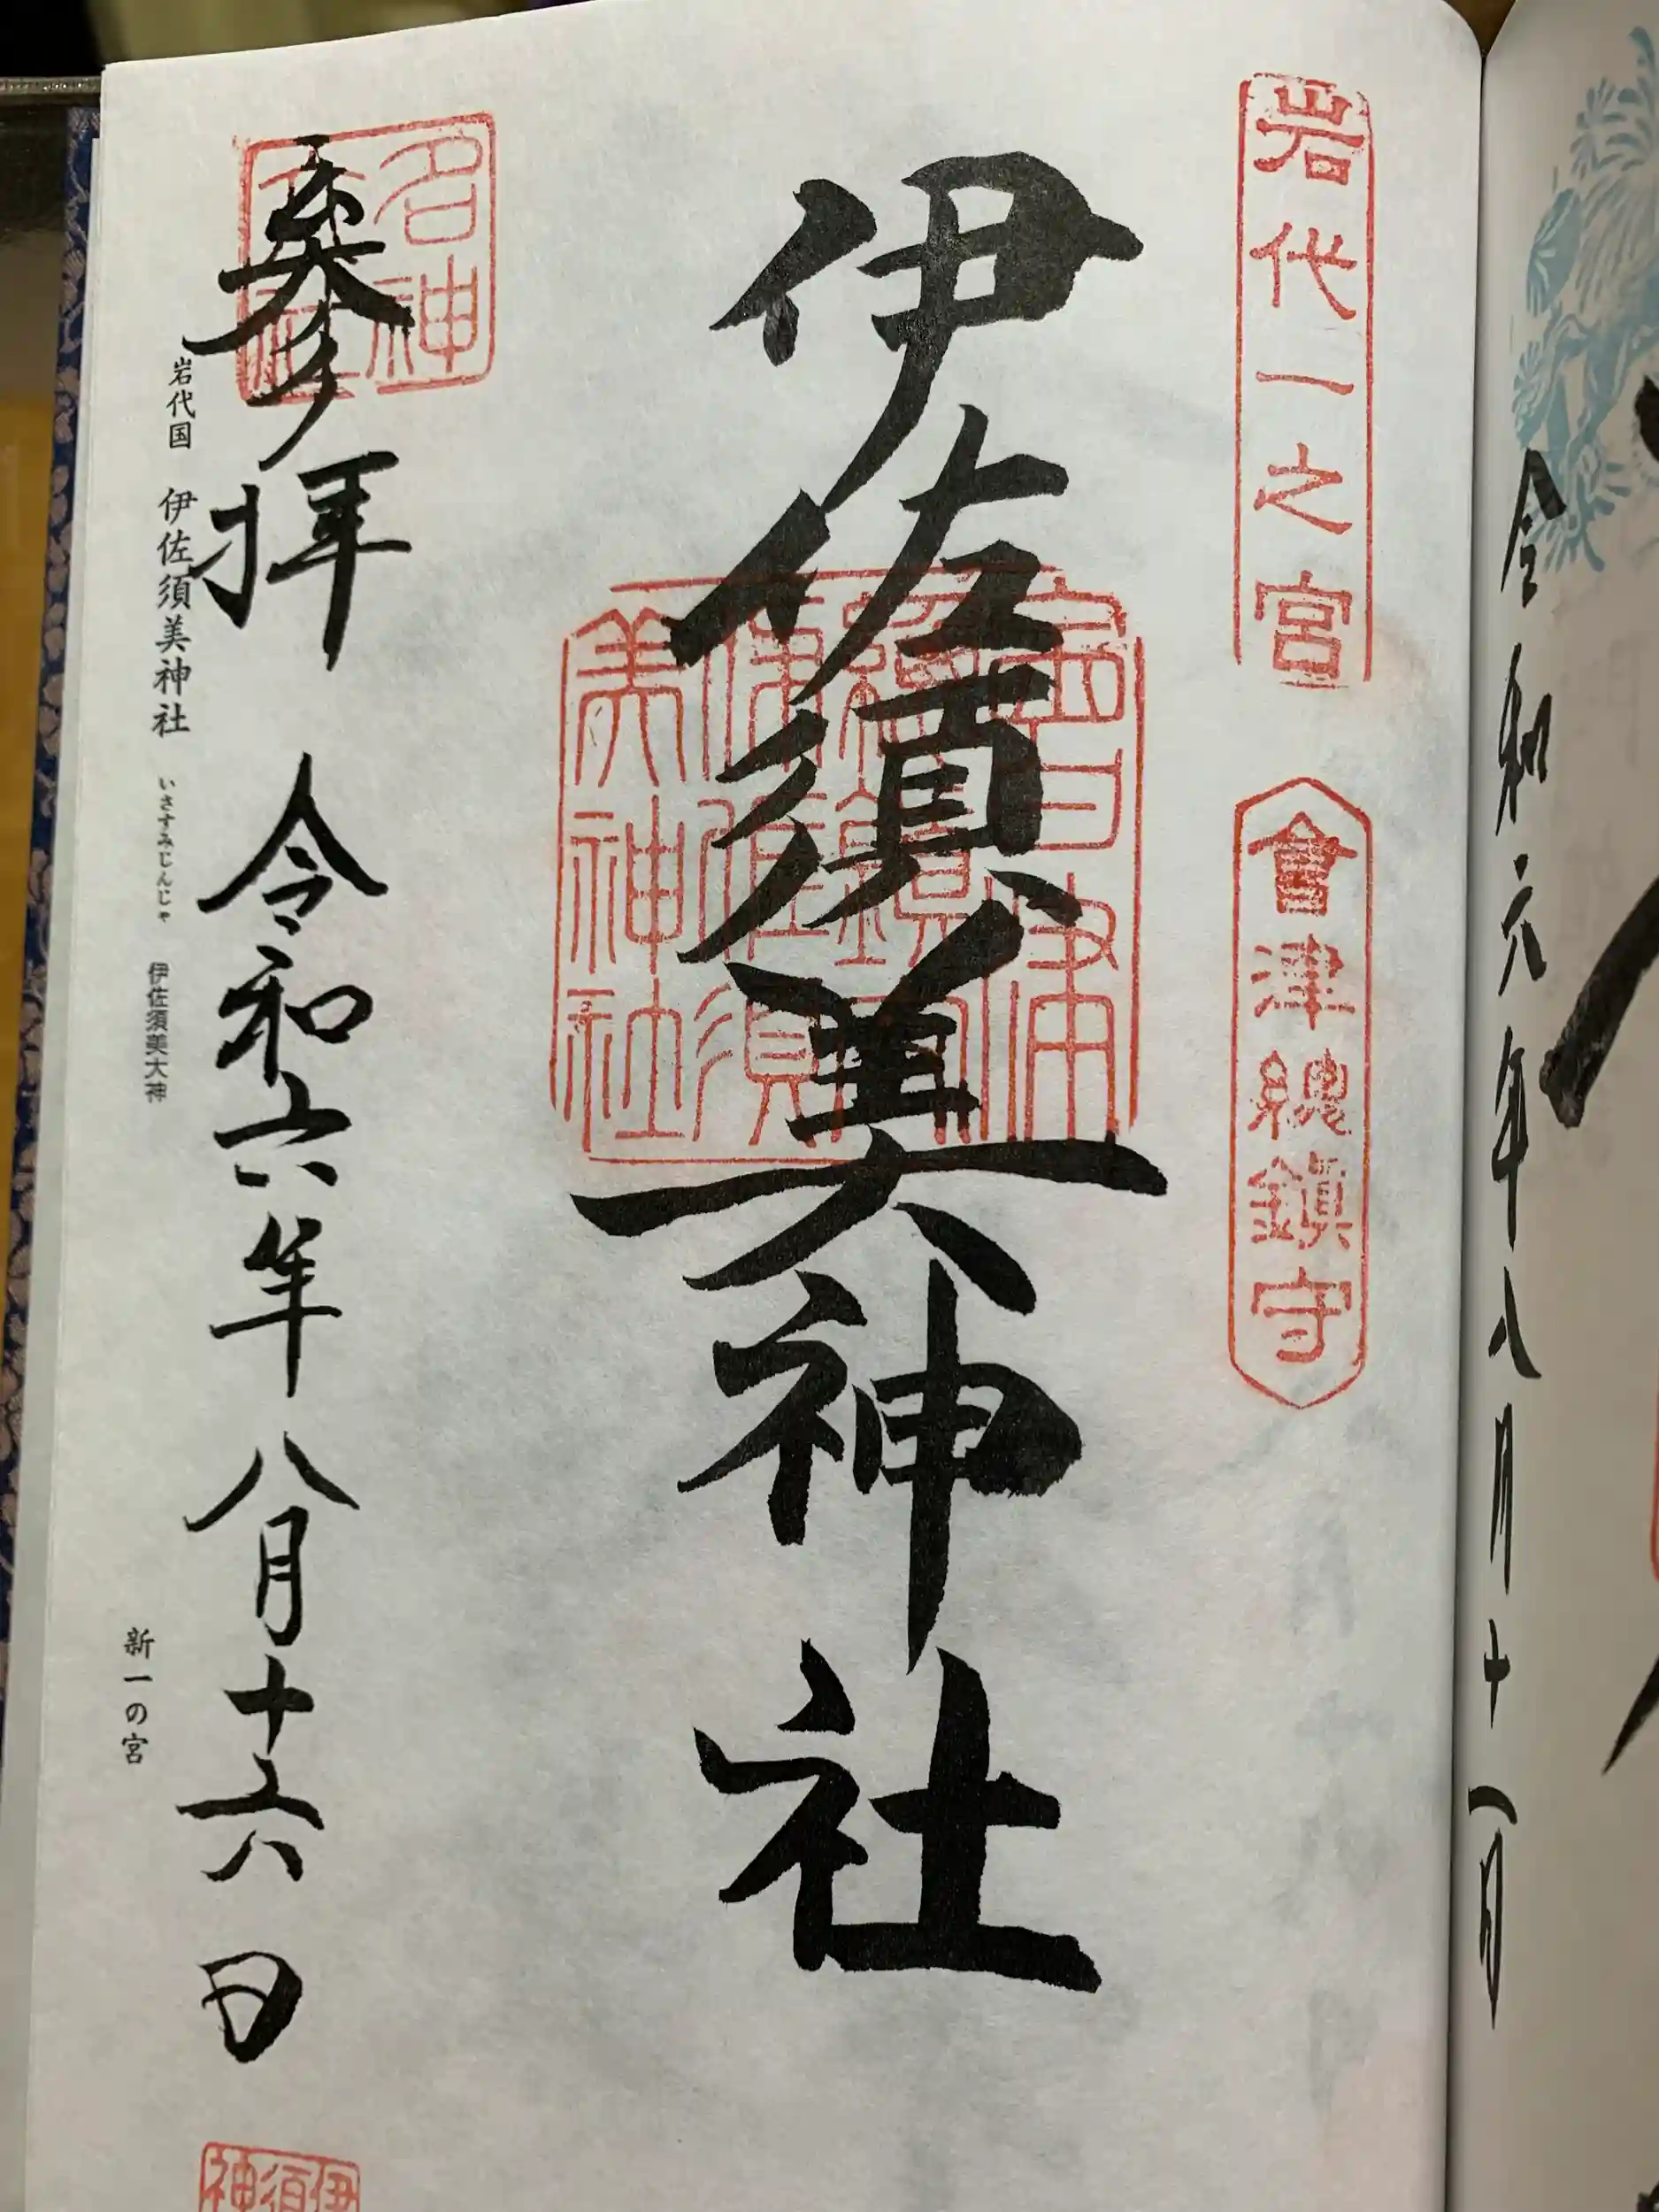 令和六年八月十一日
岩代一之宮
會津總鎮守
伊佐須美神社
名神
参拝 令和六年八月十六日
岩代国 伊佐須美神社 いさすみじんじゃ 伊佐須美大神
新一の宮